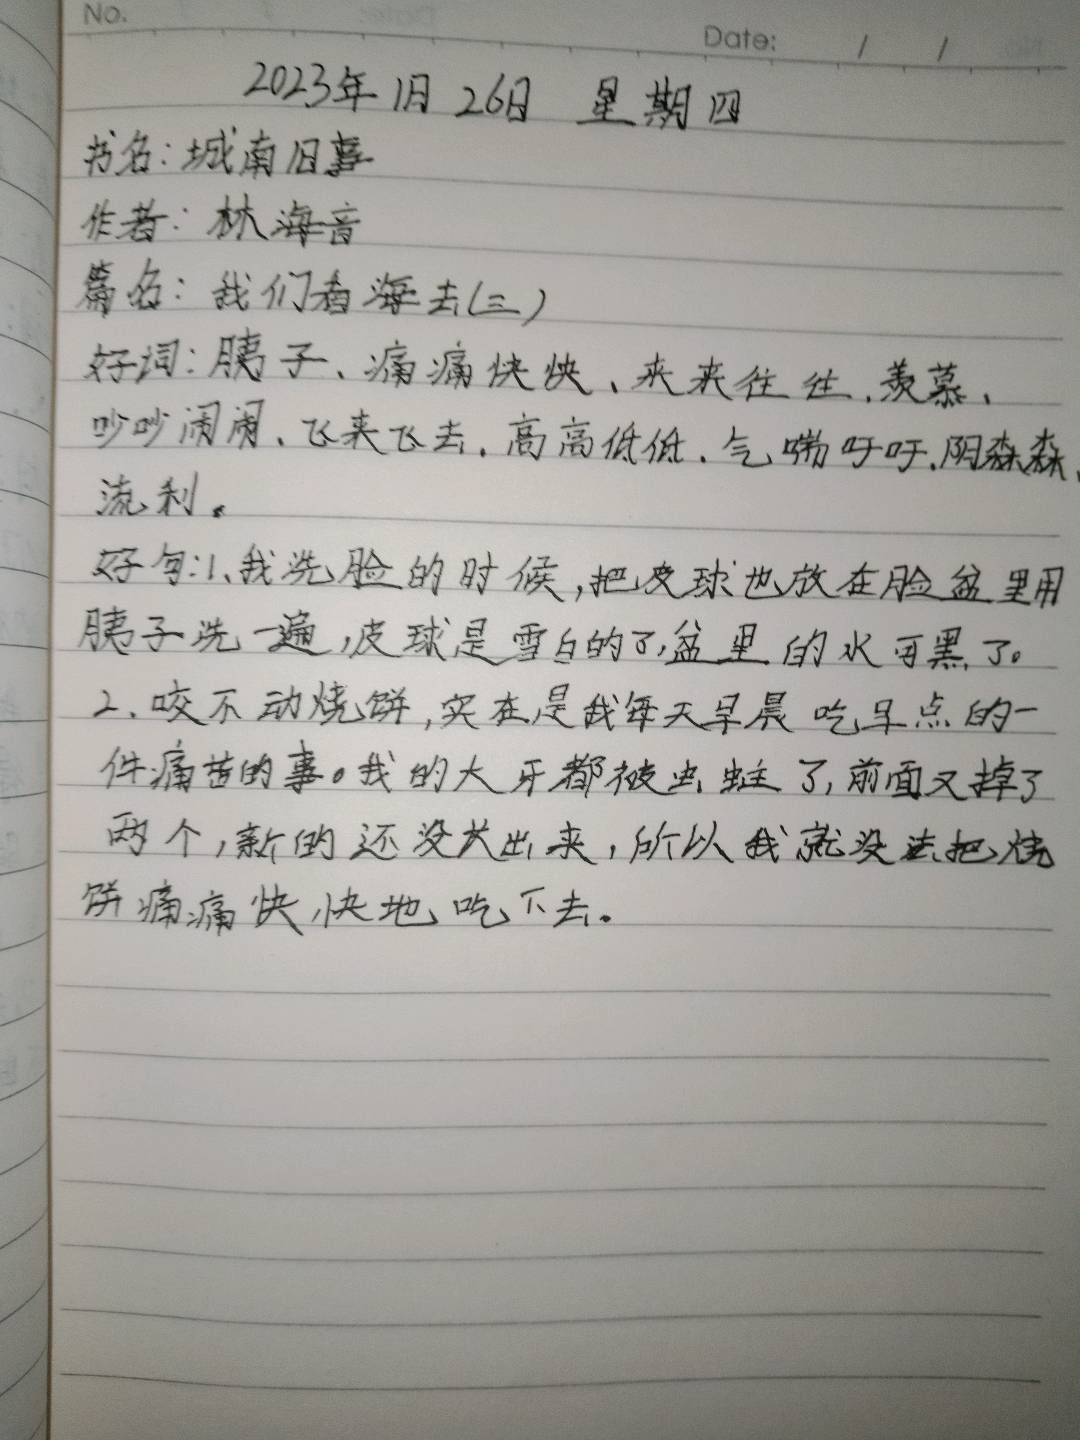 No.
Date: / /
2023年1月26日 星期四
书名:城南旧事
作者:林海音
篇名:我们看海去(三)
好词:胰子、痛痛快快、来来往往、羡慕、
吵吵闹闹、飞来飞去、高高低低、气喘吁吁、阴森森、
流利。
好句:1、我洗脸的时候,把皮球也放在脸盆里用
胰子洗一遍,皮球是雪白的了,盆里的水可黑了。
2、咬不动烧饼,实在是我每天早晨吃早点的一
件痛苦的事。我的大牙都被虫蛀了,前面又掉了
两个,新的还没长出来,所以我就没法把烧
饼痛痛快快地吃下去。